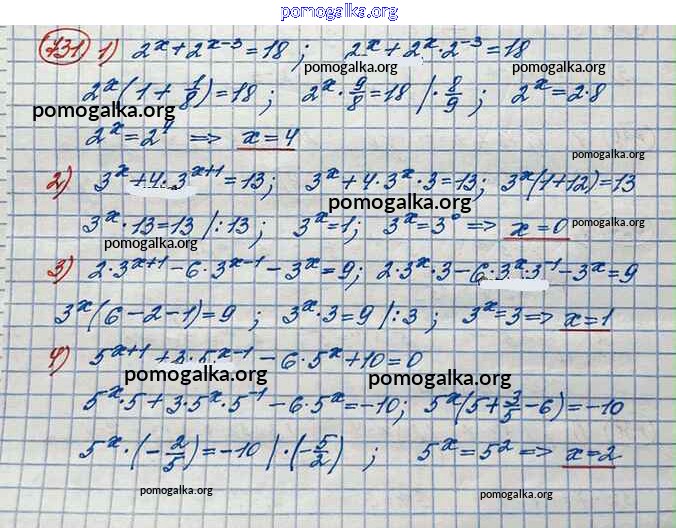 pomogalka.org
731 1) 2^x + 2^(x-3) = 18; 2^x + 2^x · 2^(-3) = 18
pomogalka.org pomogalka.org
2^x (1 + 1/8) = 18; 2^x · 9/8 = 18 | · 8/9; 2^x = 2·8
pomogalka.org
2^x = 2^4 => x = 4
pomogalka.org
2) 3^x + 4·3^(x+1) = 13; 3^x + 4·3^x·3 = 13; 3^x (1+12) = 13
pomogalka.org
3^x · 13 = 13 /:13; 3^x = 1; 3^x = 3^0 => x = 0
pomogalka.org
pomogalka.org
3) 2·3^(x+1) - 6·3^(x-1) - 3^x = 9; 2·3^x·3 - 6·3^x·3^(-1) - 3^x = 9
3^x (6-2-1) = 9; 3^x · 3 = 9 /:3; 3^x = 3 => x = 1
4) 5^(x+1) + 3·5^(x-1) - 6·5^x + 10 = 0
pomogalka.org pomogalka.org
5^x·5 + 3·5^x·5^(-1) - 6·5^x = -10; 5^x (5 + 3/5 - 6) = -10
5^x · (-2/5) = -10 | · (-5/2); 5^x = 5^2 => x = 2
pomogalka.org pomogalka.org